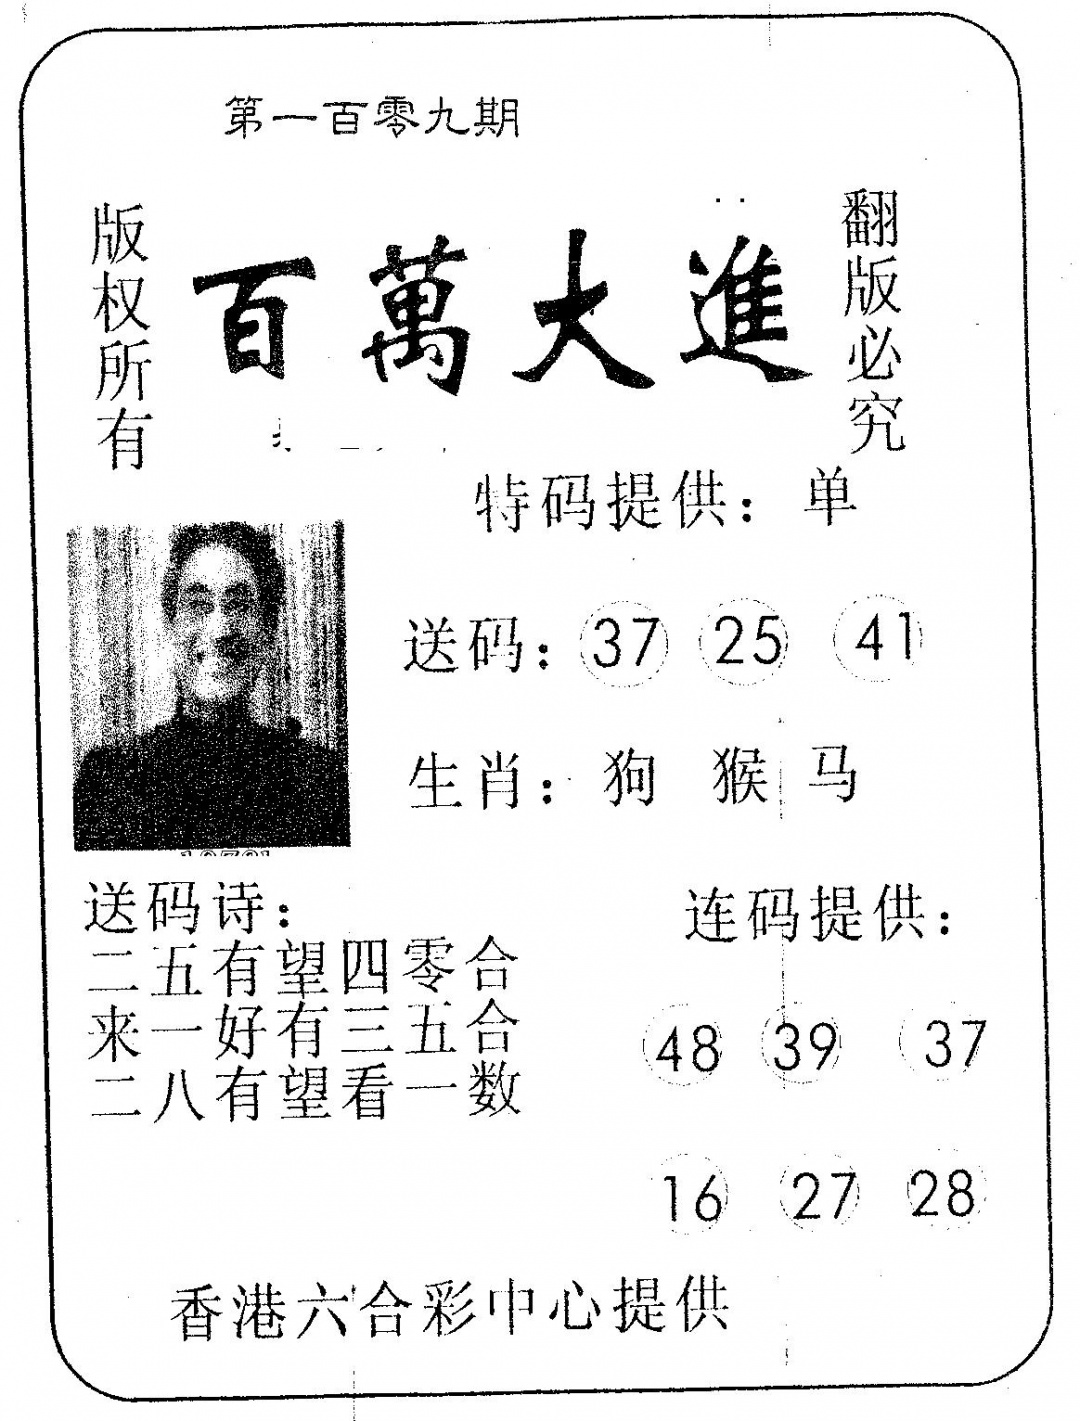 第一百零九期
版权所有
百萬大進
翻版必究
特码提供：单
送码：37 25 41
生肖：狗 猴 马
送码诗：
二五有望四零合
来一好有三五合
二八有望看一数
连码提供：
48 39 37
16 27 28
香港六合彩中心提供